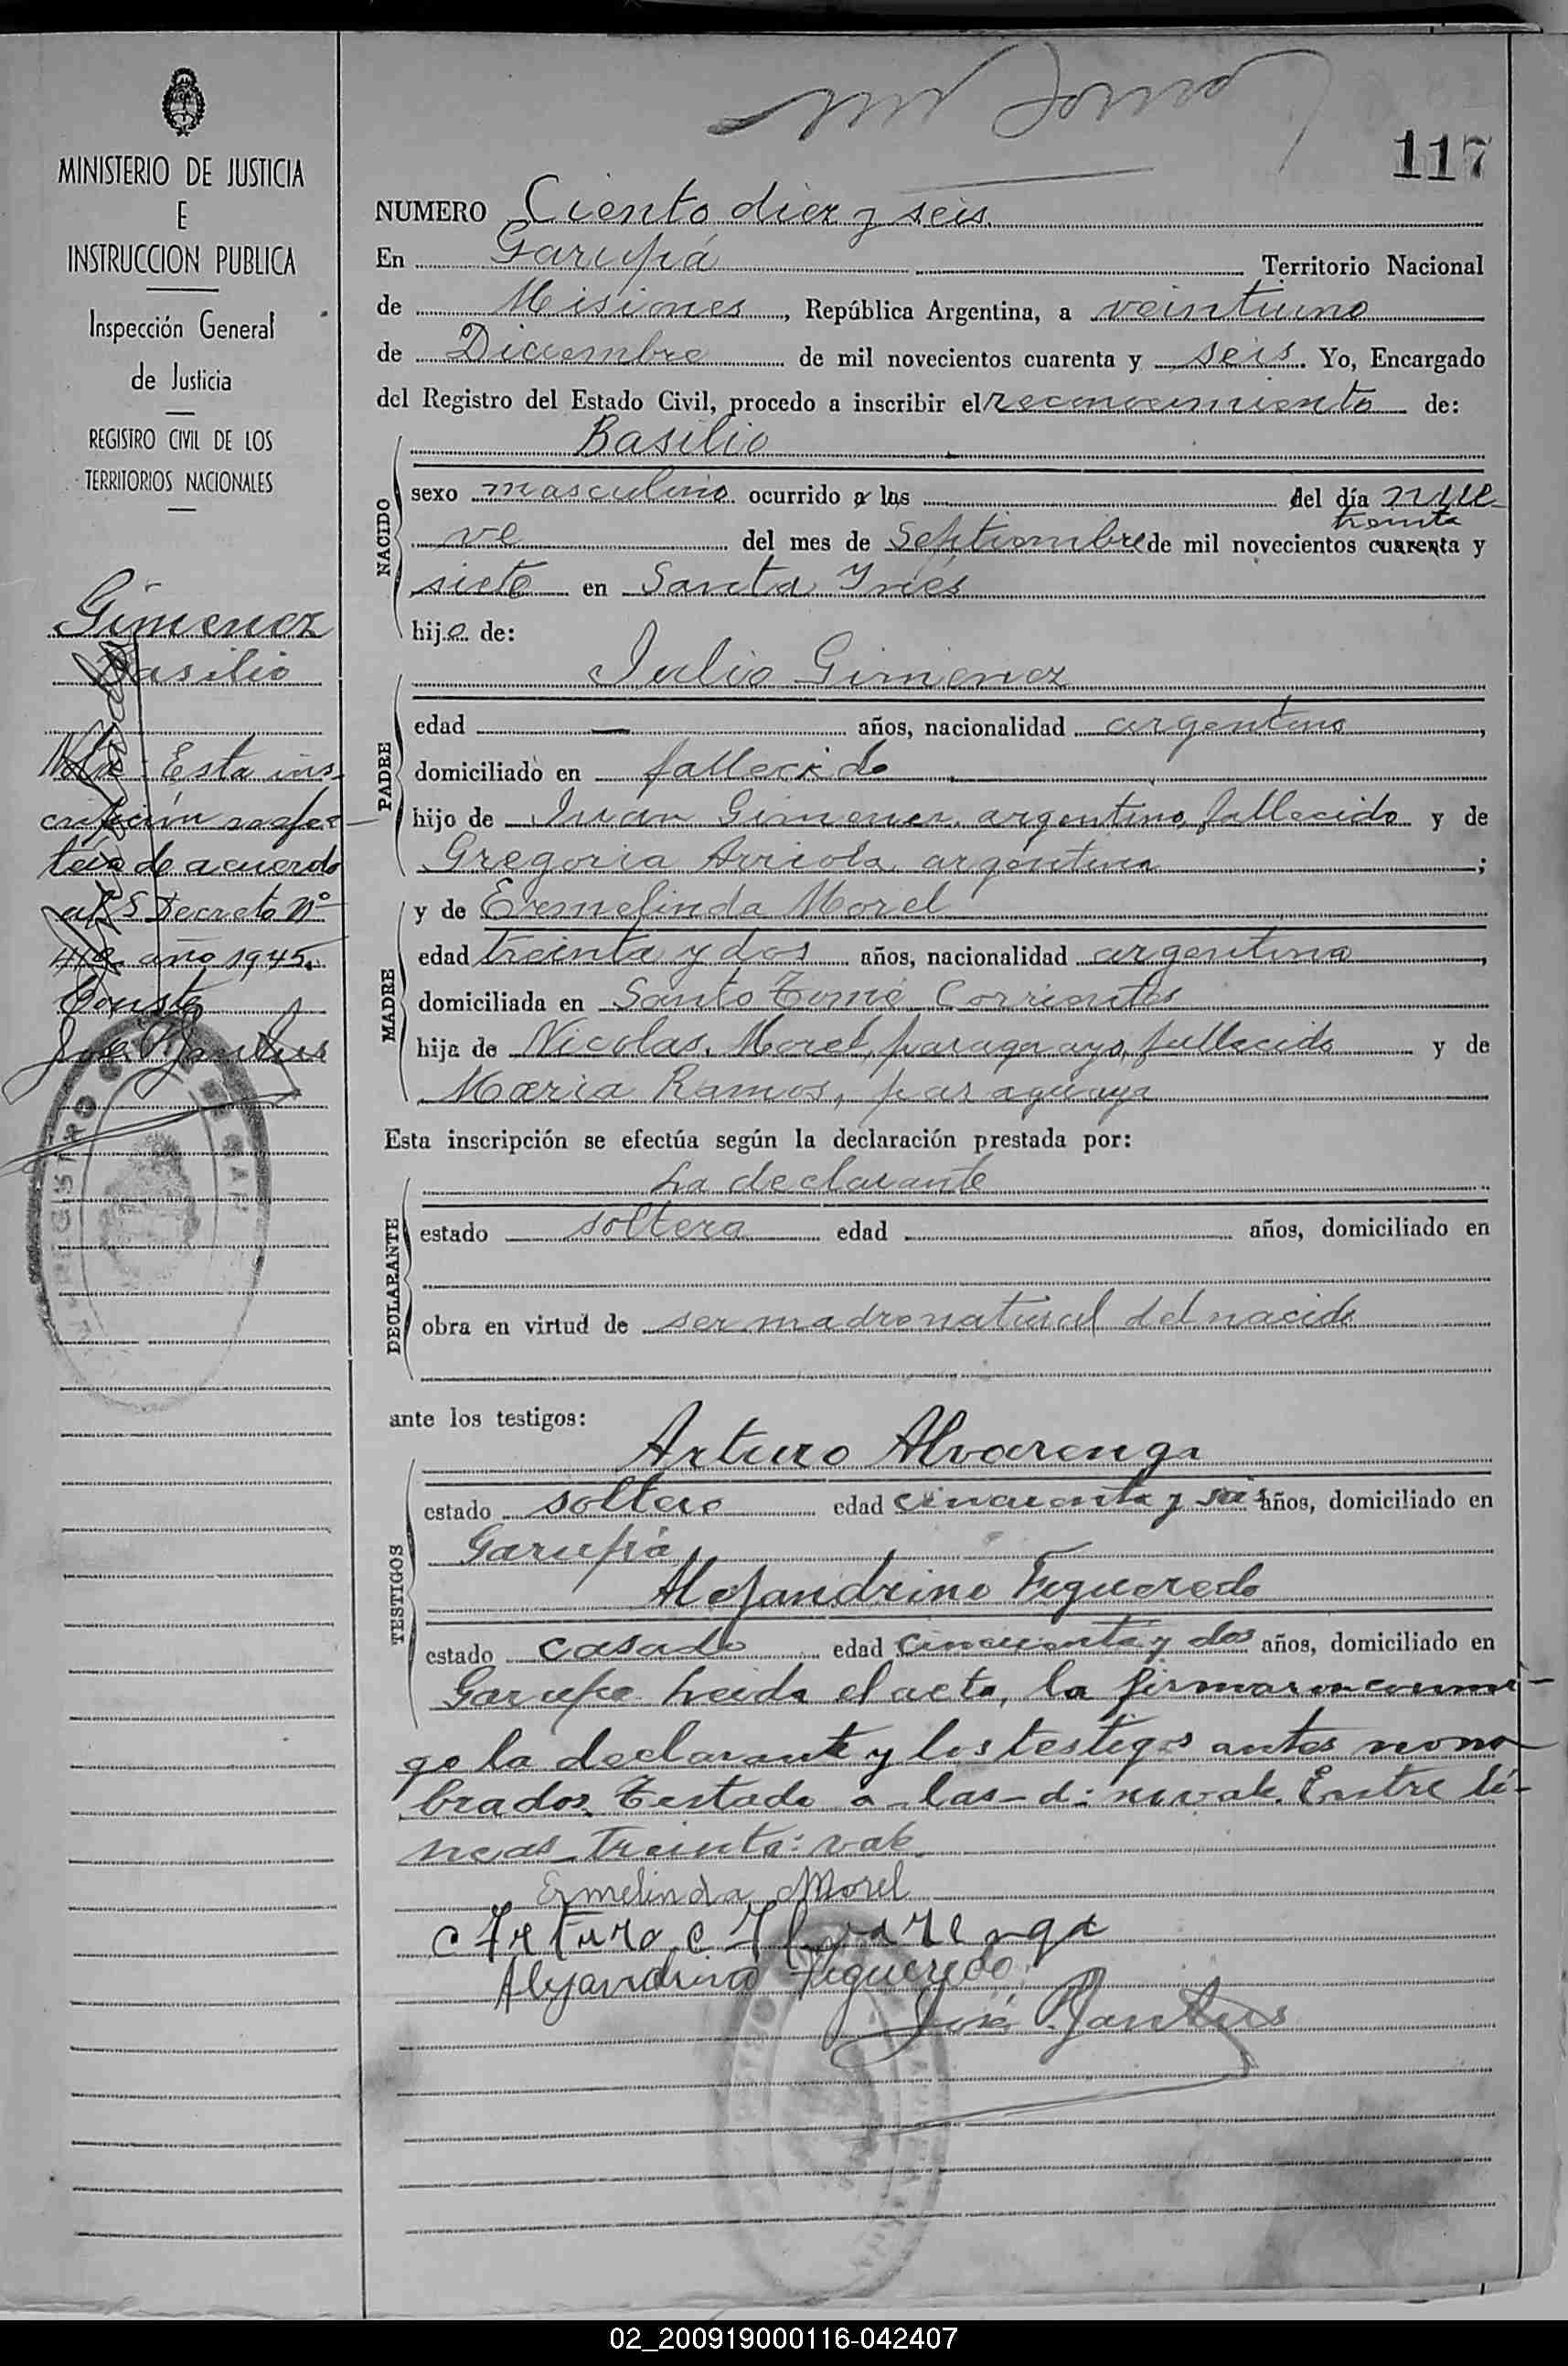 117
MINISTERIO DE JUSTICIA
E
INSTRUCCION PUBLICA
Inspección General
de Justicia
REGISTRO CIVIL DE LOS
TERRITORIOS NACIONALES
Gimenez
Basilio
Nota: Esta ins-
cripción
de acuerdo
al Decreto Nº
año 1945.
Conste
José
NUMERO Ciento diez y seis.
En Garupá Territorio Nacional
de Misiones, República Argentina, a veintiuno
de Diciembre de mil novecientos cuarenta y seis. Yo, Encargado
del Registro del Estado Civil, procedo a inscribir el reconocimiento de:
Basilio
NACIDO
sexo masculino ocurrido a las del día nue-
treinta
ve del mes de Septiembre de mil novecientos cuarenta y
siete en Santa Ynés
hijo de:
Julio Gimenez
PADRE
edad — años, nacionalidad argentino,
domiciliado en fallecido
hijo de Juan Gimenez, argentino, fallecido y de
Gregoria Arriola, argentina;
y de Ermelinda Morel
MADRE
edad treinta y dos años, nacionalidad argentina,
domiciliada en Santo Tomé Corrientes
hija de Nicolas Morel, paraguayo, fallecido y de
Maria Ramos, paraguaya
Esta inscripción se efectúa según la declaración prestada por:
La declarante
DECLARANTE
estado soltera edad años, domiciliado en
obra en virtud de ser madre natural del nacido
ante los testigos:
Arturo Alvarenga
TESTIGOS
estado soltero edad cincuenta y seis años, domiciliado en
Garupá
Alejandrino Figueredo
estado casado edad cincuenta y dos años, domiciliado en
Garupá. Leida el acta, la firmaron conmi-
go la declarante y los testigos antes nom
brados. Testado a-las-d: no vale. Entre lí-
neas-treinta: vale.
Ermelinda Morel
Arturo Alvarenga
Alejandrino Figueredo
José
02_200919000116-042407